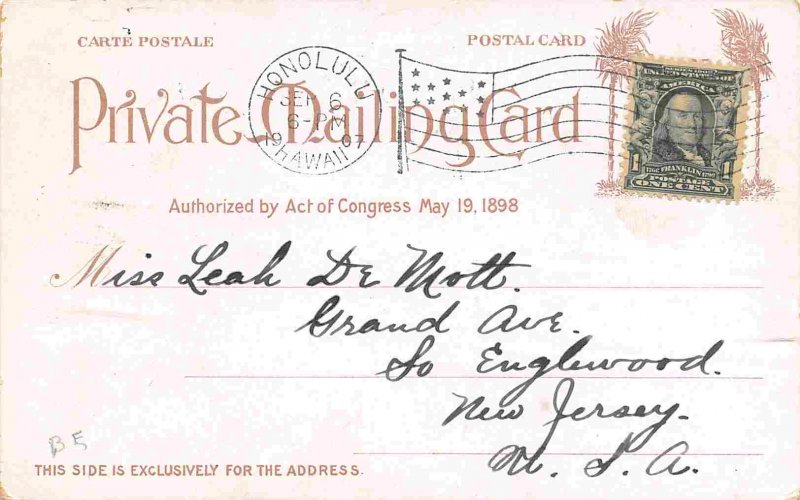 CARTE POSTALE POSTAL CARD
HONOLULU
SEP 6
6-PM
1907
HAWAII
SERIES 1902
UNITED STATES OF
AMERICA
1706 FRANKLIN 1790
1 POSTAGE 1
ONE CENT
Private Mailing Card
Authorized by Act of Congress May 19, 1898
Miss Leah De Mott.
Grand Ave.
So Englewood.
New Jersey.
U. S. A.
BE
THIS SIDE IS EXCLUSIVELY FOR THE ADDRESS.